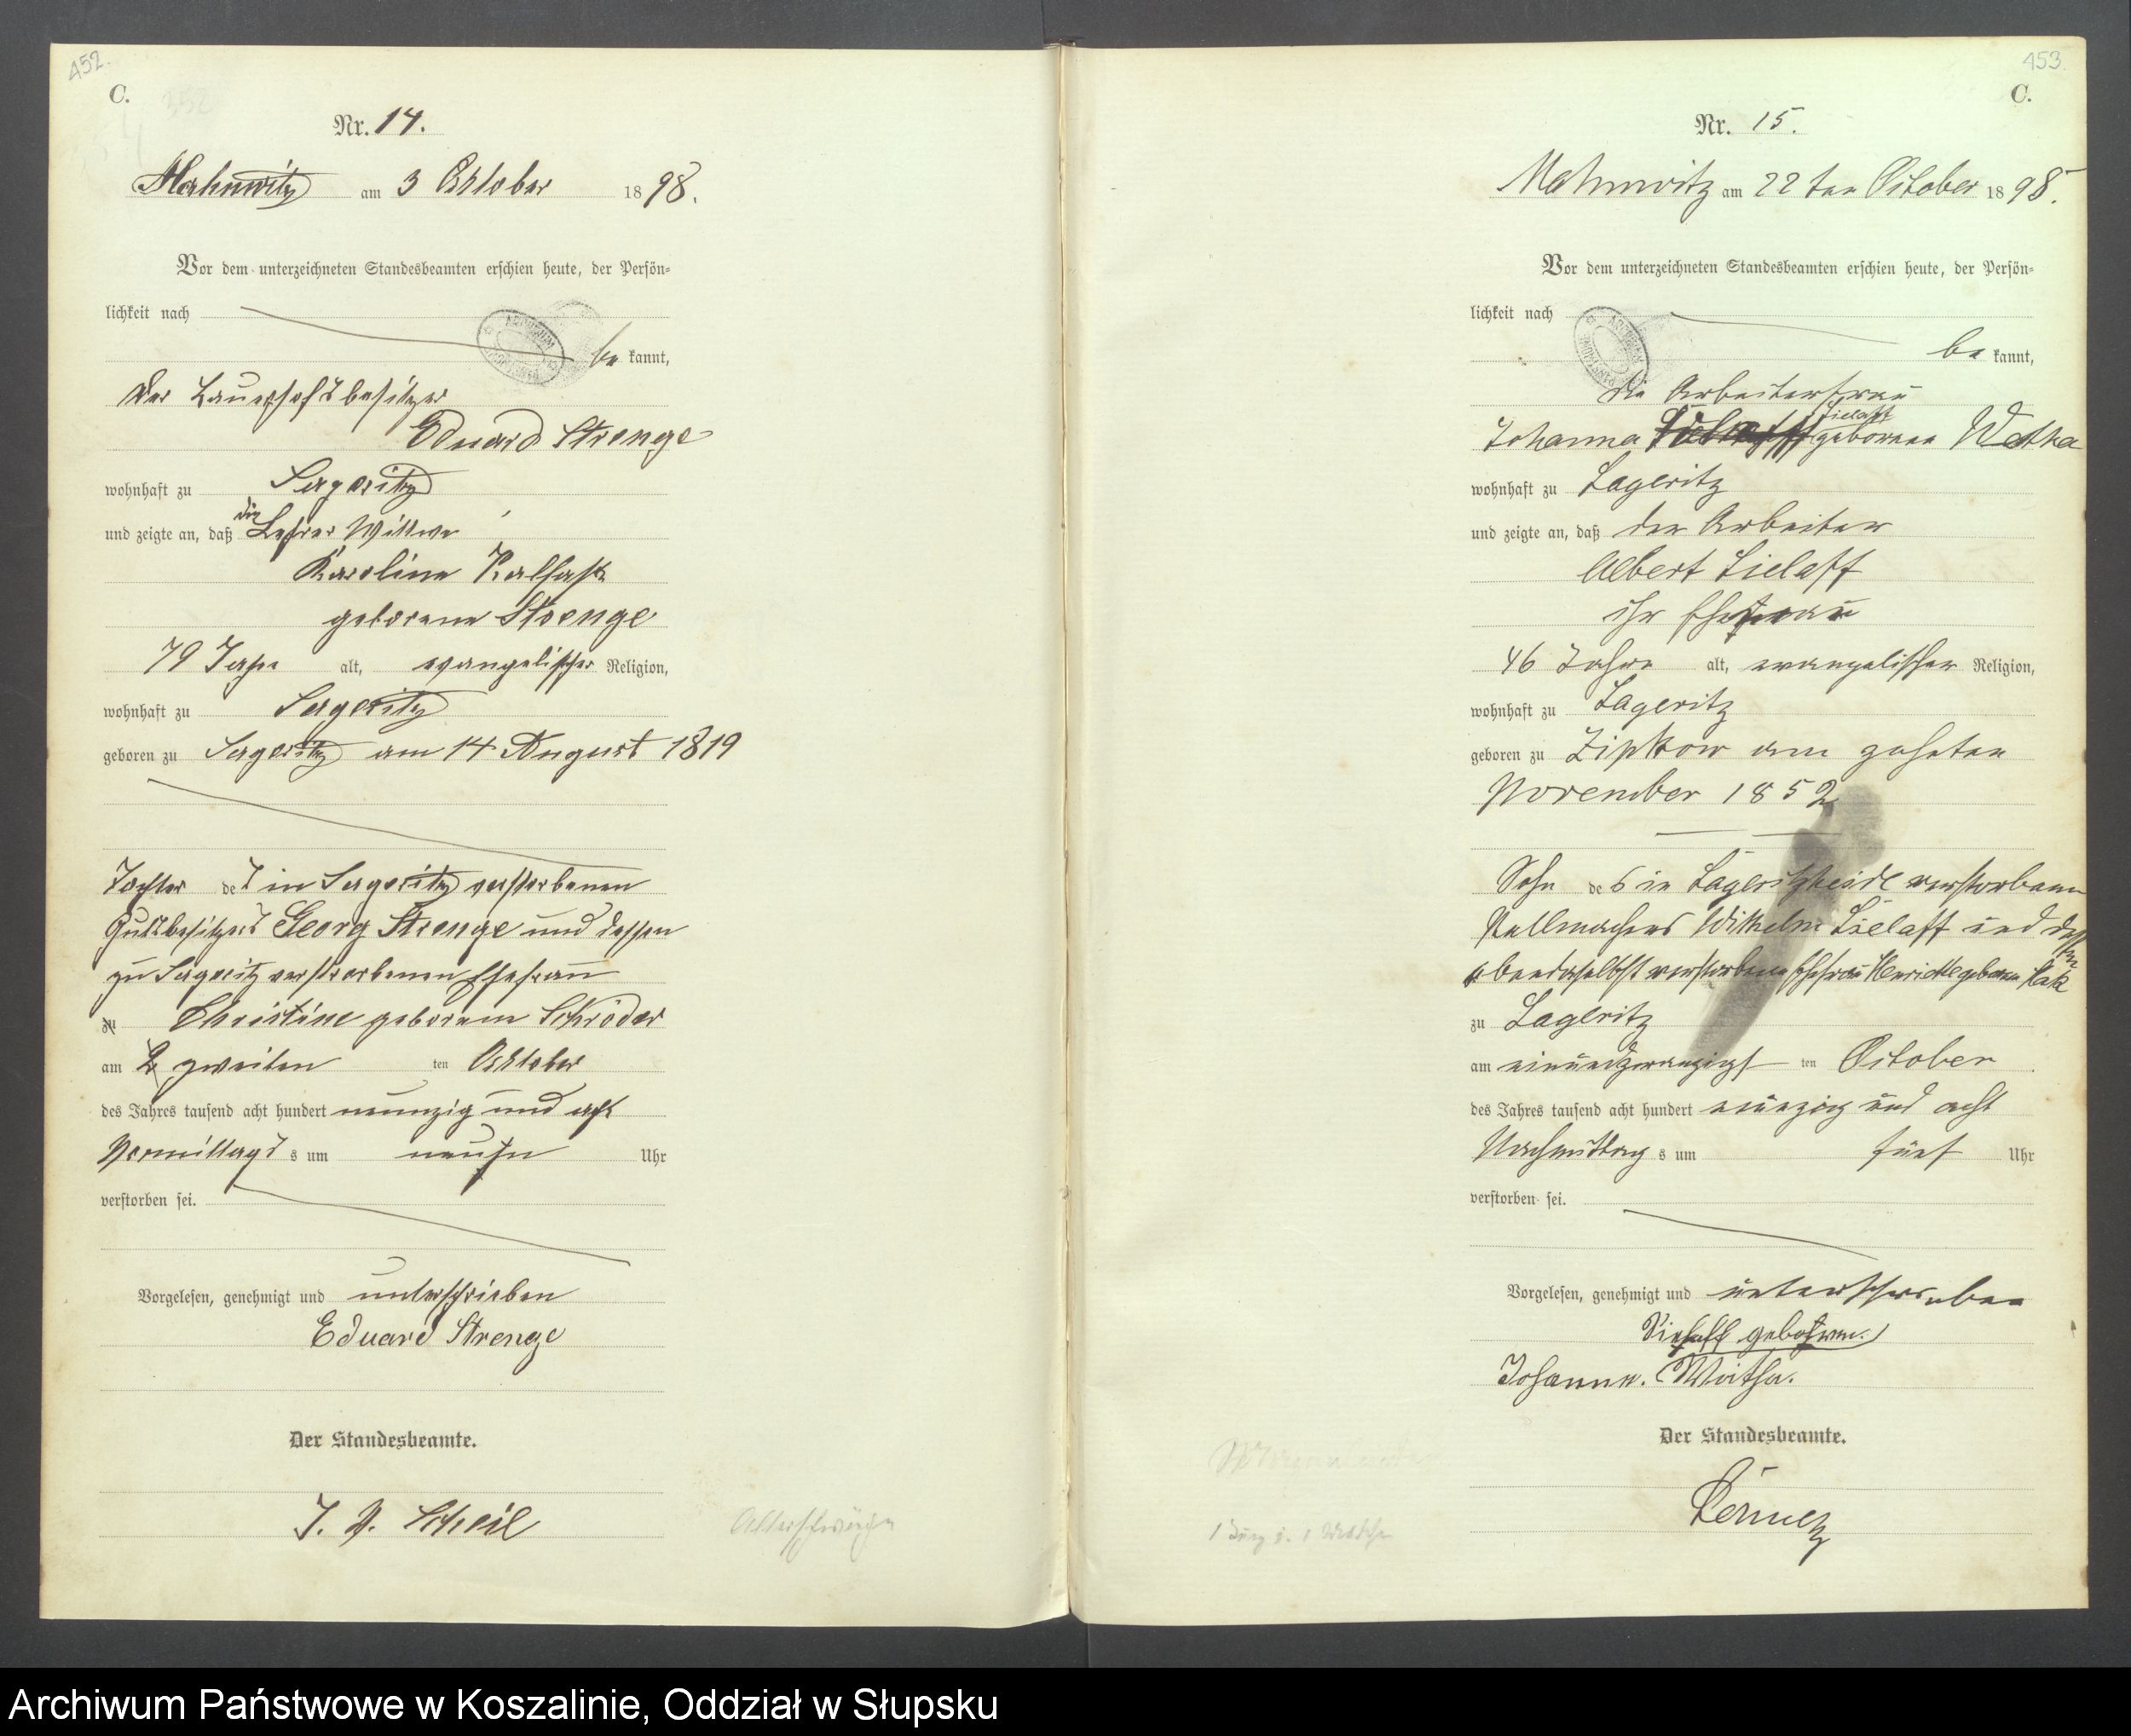 452.
C.
Nr. 14.
Mahnwitz am 3 Oktober 1898.
Vor dem unterzeichneten Standesbeamten erschien heute, der Persön-
lichkeit nach
be kannt,
der
Eduard Strenge
wohnhaft zu Sageritz
und zeigte an, daß die Lehrer Wittwe
Karoline
geborene Strenge
79 Jahre alt, evangelischer Religion,
wohnhaft zu Sageritz
geboren zu Sageritz am 14 August 1819
Tochter des in Sageritz verstorbenen
Gutsbesitzers Georg Strenge und dessen
zu Sageritz verstorbenen Ehefrau
zu Christine geborene Schröder
am zweiten ten Oktober
des Jahres tausend acht hundert neunzig und acht
Vormittags s um neun Uhr
verstorben sei.
Vorgelesen, genehmigt und unterschrieben
Eduard Strenge
Der Standesbeamte.
J. V. Scheil
Altersschwäche
453.
C.
Nr. 15.
Mahnwitz am 22 ten October 1898.
Vor dem unterzeichneten Standesbeamten erschien heute, der Persön-
lichkeit nach
be kannt,
die Arbeiterfrau
Johanna Zielaff geborene
wohnhaft zu Sageritz
und zeigte an, daß der Arbeiter
Albert Zielaff
ihr
46 Jahre alt, evangelischer Religion,
wohnhaft zu Sageritz
geboren zu Zipkow am zehnten
November 1852
Sohn des in Sageritzheide verstorbenen
Stellmachers Wilhelm Zielaff und dessen
ebendaselbst verstorbene Ehefrau geborene
zu Sageritz
am einundzwanzigst ten October
des Jahres tausend acht hundert neunzig und acht
Nachmittag s um fünf Uhr
verstorben sei.
Vorgelesen, genehmigt und unterschrieben
geborene
Johanna.
Der Standesbeamte.
Archiwum Państwowe w Koszalinie, Oddział w Słupsku